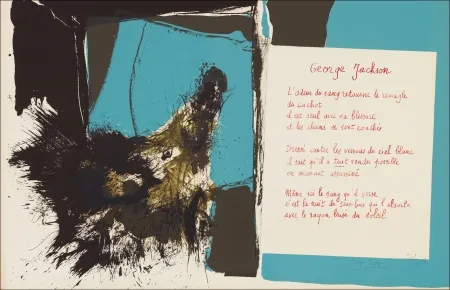 George Jackson
L'odeur du sang retourne le
du cachot
il est seul avec sa blessure
et les chiens se sont couchés
Dressé contre les verrous du ciel blanc
il sait qu'il a tout rendu possible
en mourant assassiné
Même si le sang qu'il verse
c'est la nuit de qui l'absorbe
avec le rayon brisé du soleil